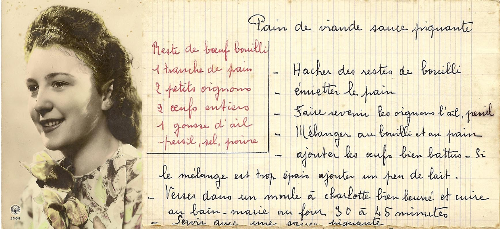 Pain de viande sauce piquante
Reste de bœuf bouilli
1 tranche de pain
2 petits oignons
2 œufs entiers
1 gousse d'ail
persil, sel, poivre
- Hacher des restes de bouilli
émietter le pain
- Faire revenir les oignons l'ail, persil
- Mélanger au bouilli et au pain
- ajouter les œufs bien battus - Si
le mélange est trop épais ajouter un peu de lait.
- Verser dans un moule à charlotte bien beurré et cuire
au bain-marie ou four 30 à 45 minutes
- Servir avec une sauce piquante